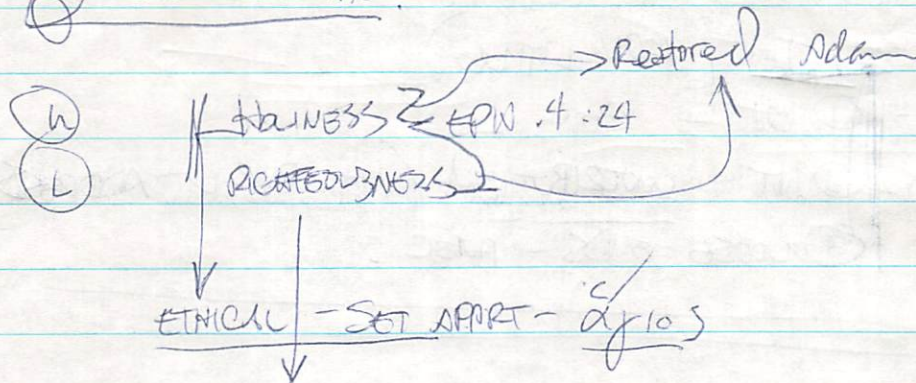 Restored Adam
H HOLINESS EPH .4:24
L RIGHTEOUSNESS
ETHICAL - SET APART - ἅγιος